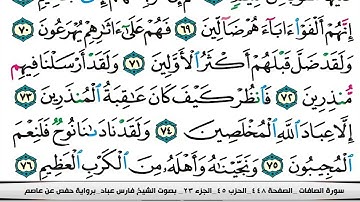 إِنَّهُمْ أَلْفَوْا۟ ءَابَآءَهُمْ ضَآلِّينَ ٦٩ فَهُمْ عَلَىٰٓ ءَاثَـٰرِهِمْ يُهْرَعُونَ ٧٠
وَلَقَدْ ضَلَّ قَبْلَهُمْ أَكْثَرُ ٱلْأَوَّلِينَ ٧١ وَلَقَدْ أَرْسَلْنَا فِيهِم
مُّنذِرِينَ ٧٢ فَٱنظُرْ كَيْفَ كَانَ عَـٰقِبَةُ ٱلْمُنذَرِينَ ٧٣
إِلَّا عِبَادَ ٱللَّهِ ٱلْمُخْلَصِينَ ٧٤ وَلَقَدْ نَادَىٰنَا نُوحٌ فَلَنِعْمَ
ٱلْمُجِيبُونَ ٧٥ وَنَجَّيْنَـٰهُ وَأَهْلَهُۥ مِنَ ٱلْكَرْبِ ٱلْعَظِيمِ ٧٦
سورة الصافات_ الصفحة ٤٤٨_ الحزب ٤٥_ الجزء ٢٣_ بصوت الشيخ فارس عباد_ برواية حفص عن عاصم